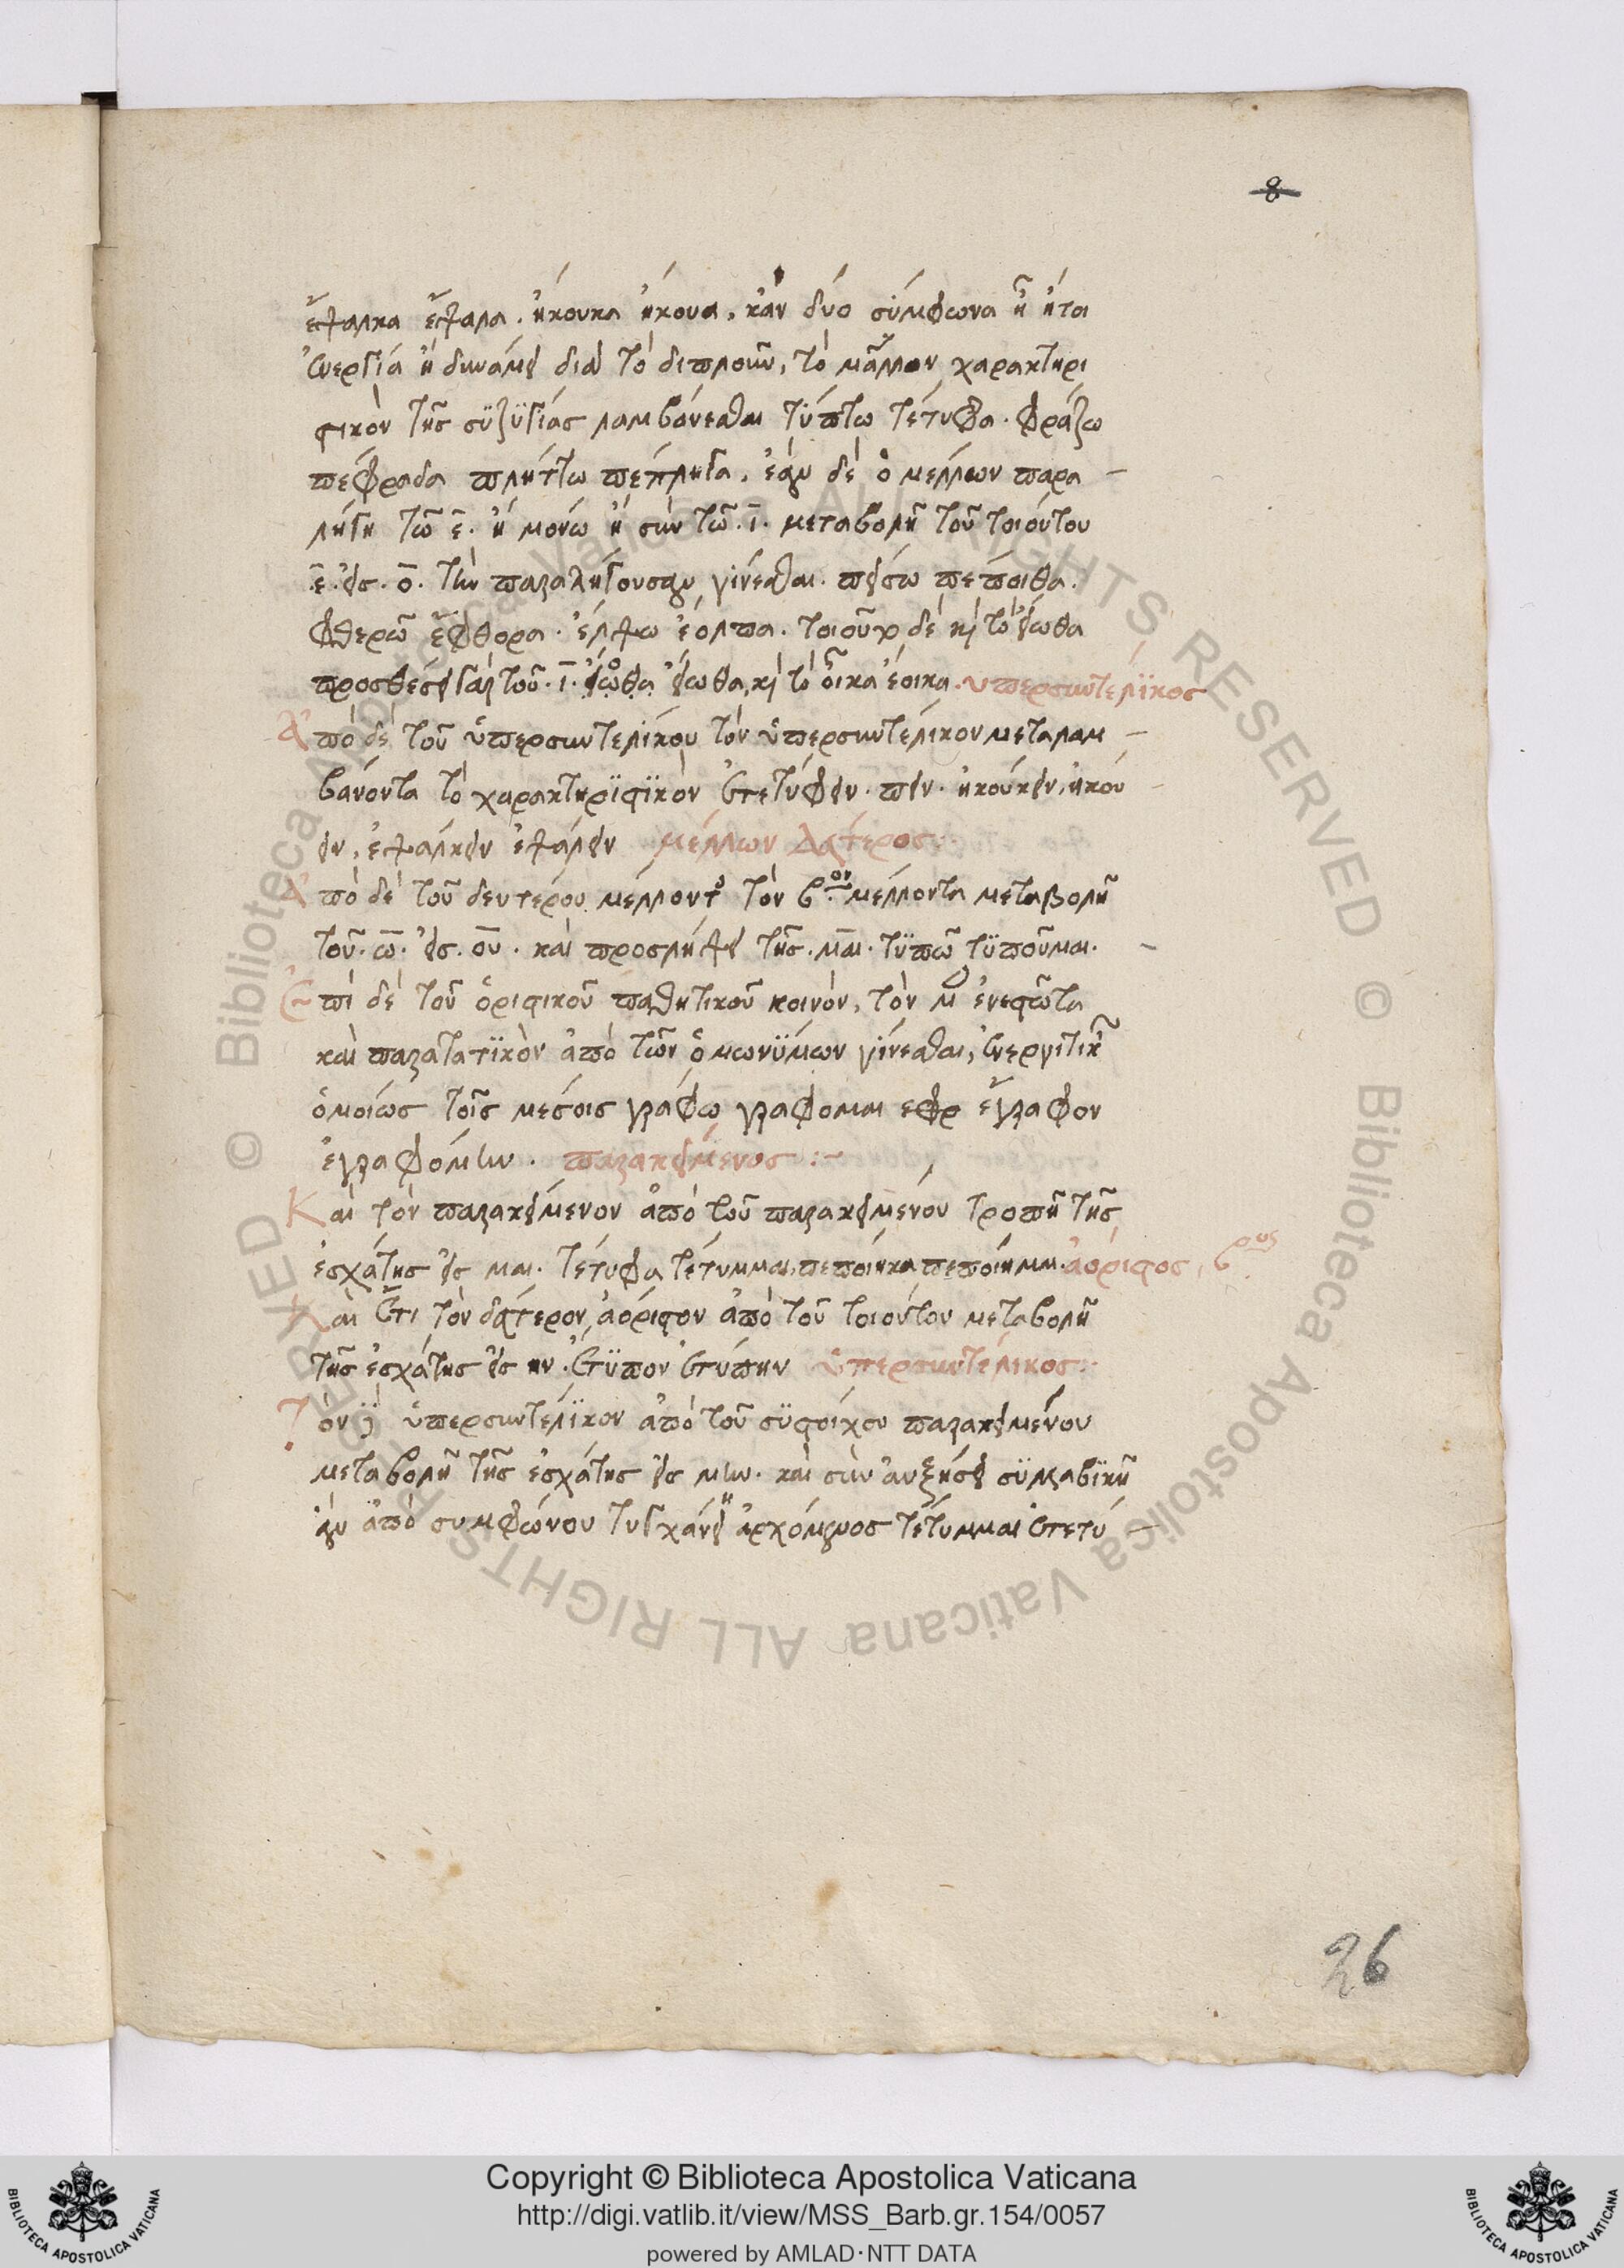 8
ἔψαλκα ἔψαλα. ἤκουκα ἤκουα. κἂν δύο σύμφωνα ἦ ἤτοι
ἐνεργεία ἢ δυνάμει διὰ τὸ διπλοῦν, τὸ μᾶλλον χαρακτηρι
στικὸν τῆς συζϋγίας λαμβάνεσθαι τύπτω τέτυφα. φράζω
πέφραδα πλήττω πέπληγα. ἐὰν δὲ ὁ μέλλων παρα
λήγη τῶ ε̄. ἢ μονω ἢ σὺν τῶ. ῑ. μεταβολῆ τοῦ τοιούτου
ε̄. εἰς. ο̄. τὴν παραλήγουσαν γίνεσθαι. πείσω πέποιθα.
φθερῶ ἔφθορα. ἔλψω ἔολπα. τοιοῦτον δὲ καὶ τὸ εἴωθα
προσθέσει γὰρ τοῦ. ῑ. εἴωθα καὶ τὸ οἶκα ἔοικα. ὑπερσυντέλϊκος
Ἀπὸ δὲ τοῦ ὑπερσυντελίκου τὸν ὑπερσυντέλικον μεταλαμ
βάνοντα τὸ χαρακτηρϊστϊκὸν ἐτετύφειν. πειν. ἠκούκειν, ἠκού
ειν, ἐψάλκειν ἐψάλειν μέλλων δεύτερος:
Ἀπὸ δὲ τοῦ δευτέρου μέλλοντος τὸν βον μέλλοντα μεταβολῆ
τοῦ. ω̄. εἰς. ου. καὶ προσλήψει τῆς. μαι. τϋπῶ τϋποῦμαι.
Ἐπὶ δὲ τοῦ ὁριστικοῦ παθητικοῦ κοινὸν, τὸν μὲν ἐνεστῶτα
καὶ παρατατϊκὸν ἀπὸ τῶν ὁμωνϋμων γίνεσθαι, ἐνεργητικ
ὁμοίως τοῖς μέσοις γράφω γράφομαι ἔγραφον
ἐγραφόμην. παρακείμενος:~
Καὶ τὸν παρακείμενον ἀπὸ τοῦ παρακειμένου τροπῆ τῆς
ἐσχάτης εἰς μαι. τέτυφα τέτυμμαι, πεποίηκα πεποίημαι. ἀόριστος, βρος
Καὶ ἔτι τὸν δεύτερον ἀόριστον ἀπὸ τοῦ τοιούτου μεταβολῆ
τῆς ἐσχάτης εἰς ην. ἔτϋπον ἐτύπην ὑπερσυντέλικος:
Τὸν ὑπερσυντέλϊκον ἀπὸ τοῦ σϋστοίχου παρακειμένου
μεταβολῆ τῆς ἐσχάτης εἰς μην. καὶ σὺν αὐξήσει σϋλλαβϊκῆ
ἂν ἀπὸ συμφώνου τυγχάνει ἀρχόμενος τέτυμμαι ἐτετύ
26
Copyright © Biblioteca Apostolica Vaticana
http://digi.vatlib.it/view/MSS_Barb.gr.154/0057
powered by AMLAD·NTT DATA